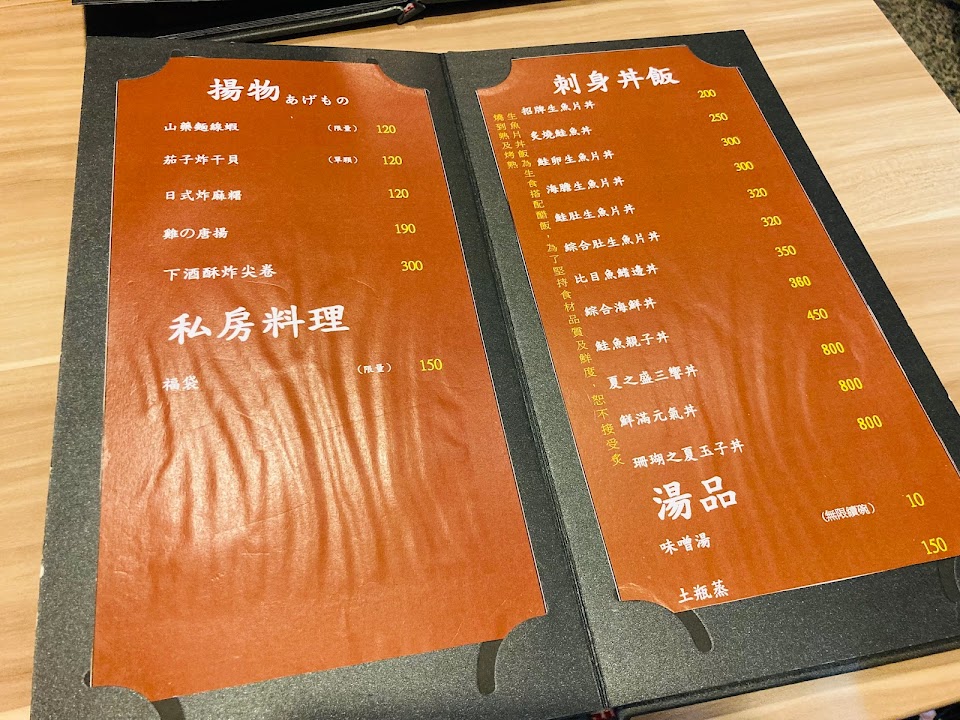 揚物 あげもの
山藥麵線蝦 (限量) 120
茄子炸干貝 (單顆) 120
日式炸麻糬 120
雞の唐揚 190
下酒酥炸尖卷 300
私房料理
福袋 (限量) 150
刺身丼飯
生魚片丼飯為生食搭配醋飯，為了堅持食材品質及鮮度，恕不接受炙
燒到熟及烤熟
招牌生魚片丼 200
炙燒鮭魚丼 250
鮭卵生魚片丼 300
海膽生魚片丼 300
鮭肚生魚片丼 320
綜合肚生魚片丼 320
比目魚鰭邊丼 350
綜合海鮮丼 360
鮭魚親子丼 450
夏之盛三饗丼 800
鮮滿元氣丼 800
珊瑚之夏玉子丼 800
湯品
味噌湯 (無限續碗) 10
土瓶蒸 150